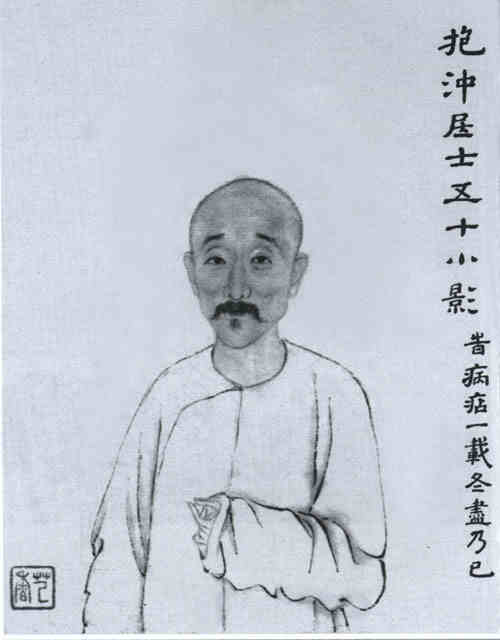 抱沖居士五十小影
旹病痁一載冬盡乃已